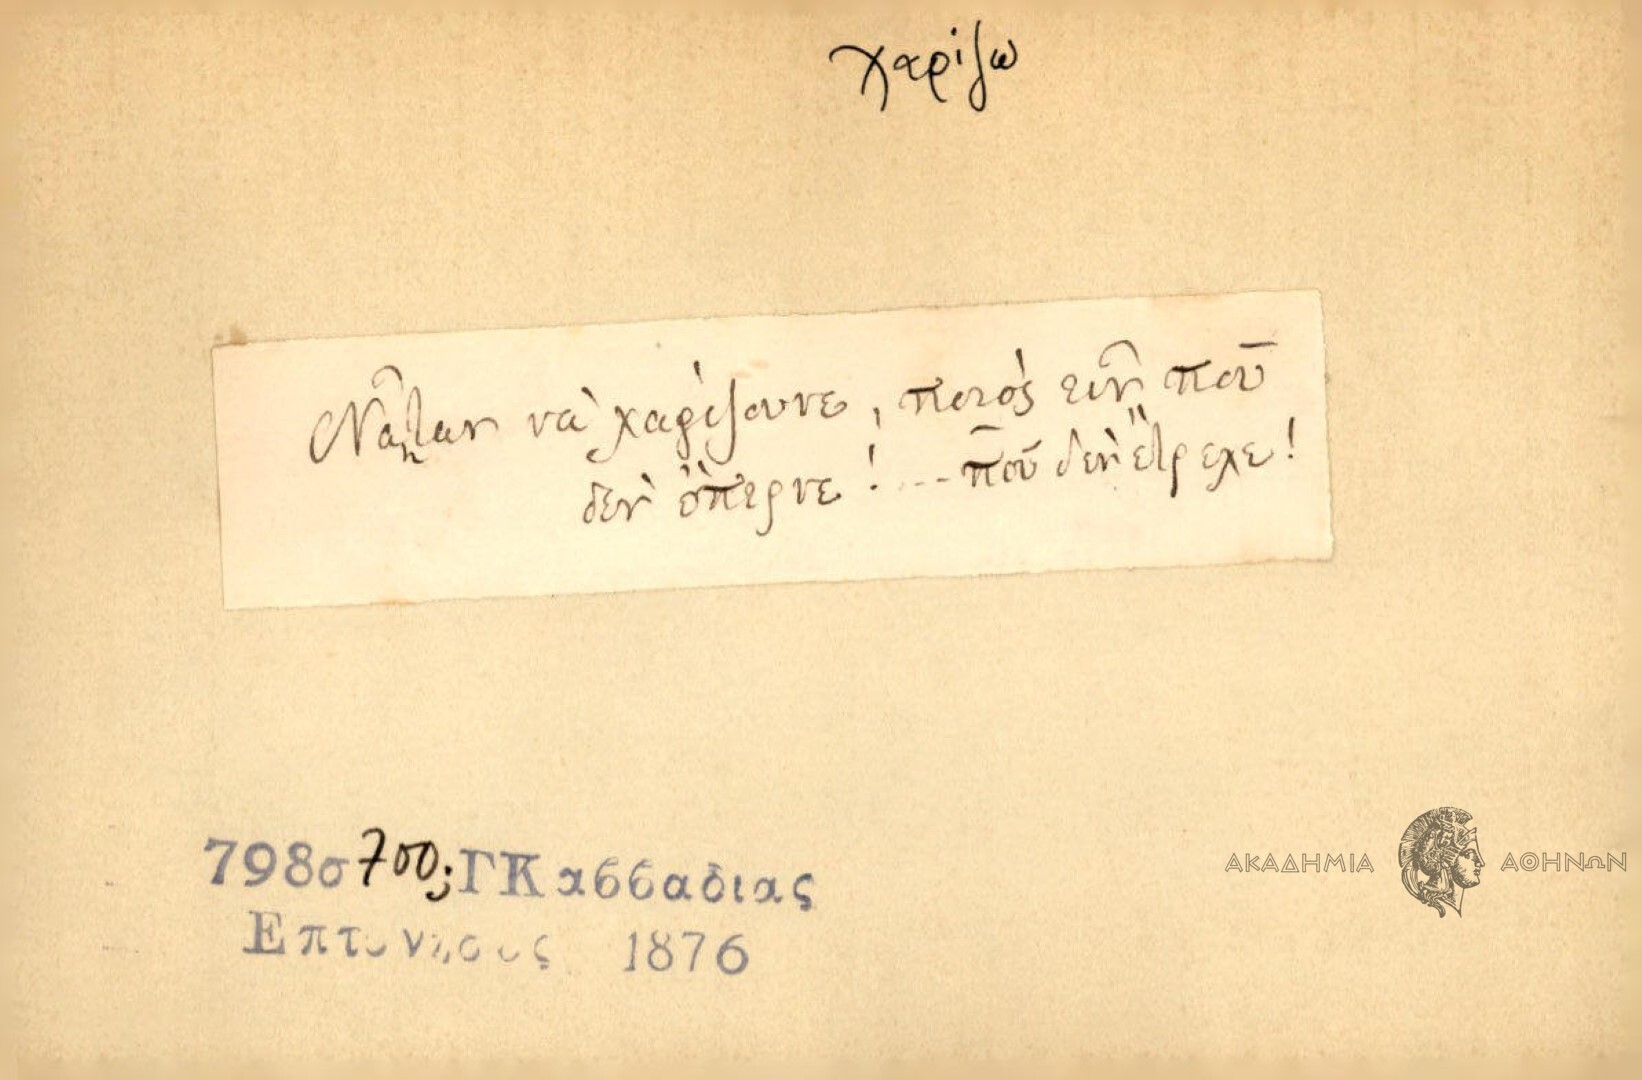 χαρίζω
Νᾶταν νὰ χαρίζουνε, ποιὸς εἶν ποῦ
δὲν ὄπερνε! ... ποῦ δὲν ἔτρεχε!
798σ700; ΓΚαββαδιας
Επτ 1876
ΑΚΑΔΗΜΙΑ ΑΘΗΝΩΝ